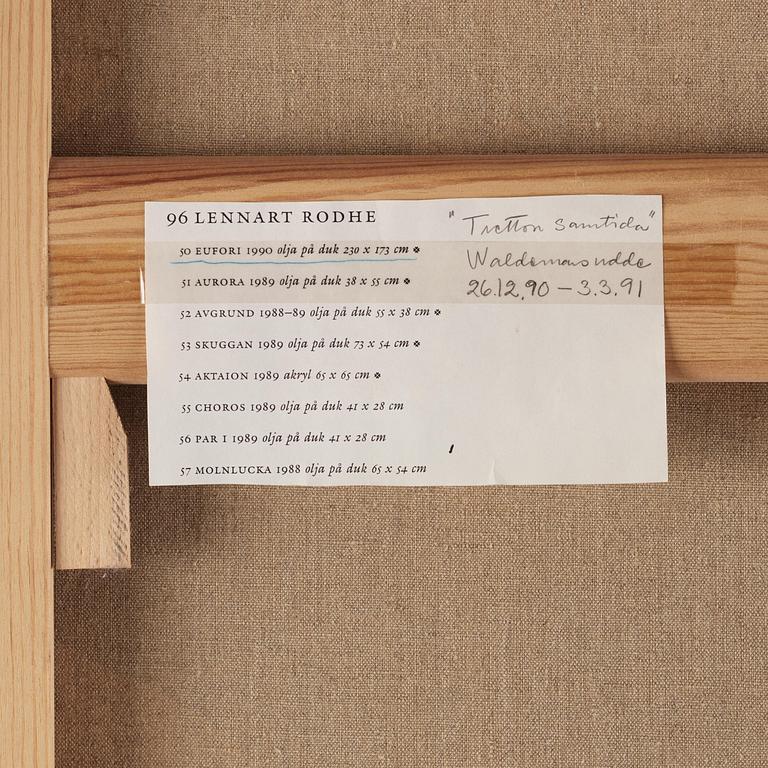 96 LENNART RODHE
50 EUFORI 1990 olja på duk 230 x 173 cm ❖
51 AURORA 1989 olja på duk 38 x 55 cm ❖
52 AVGRUND 1988–89 olja på duk 55 x 38 cm ❖
53 SKUGGAN 1989 olja på duk 73 x 54 cm ❖
54 AKTAION 1989 akryl 65 x 65 cm ❖
55 CHOROS 1989 olja på duk 41 x 28 cm
56 PAR I 1989 olja på duk 41 x 28 cm
57 MOLNLUCKA 1988 olja på duk 65 x 54 cm
"Tretton samtida"
Waldemarsudde
26.12.90 – 3.3.91